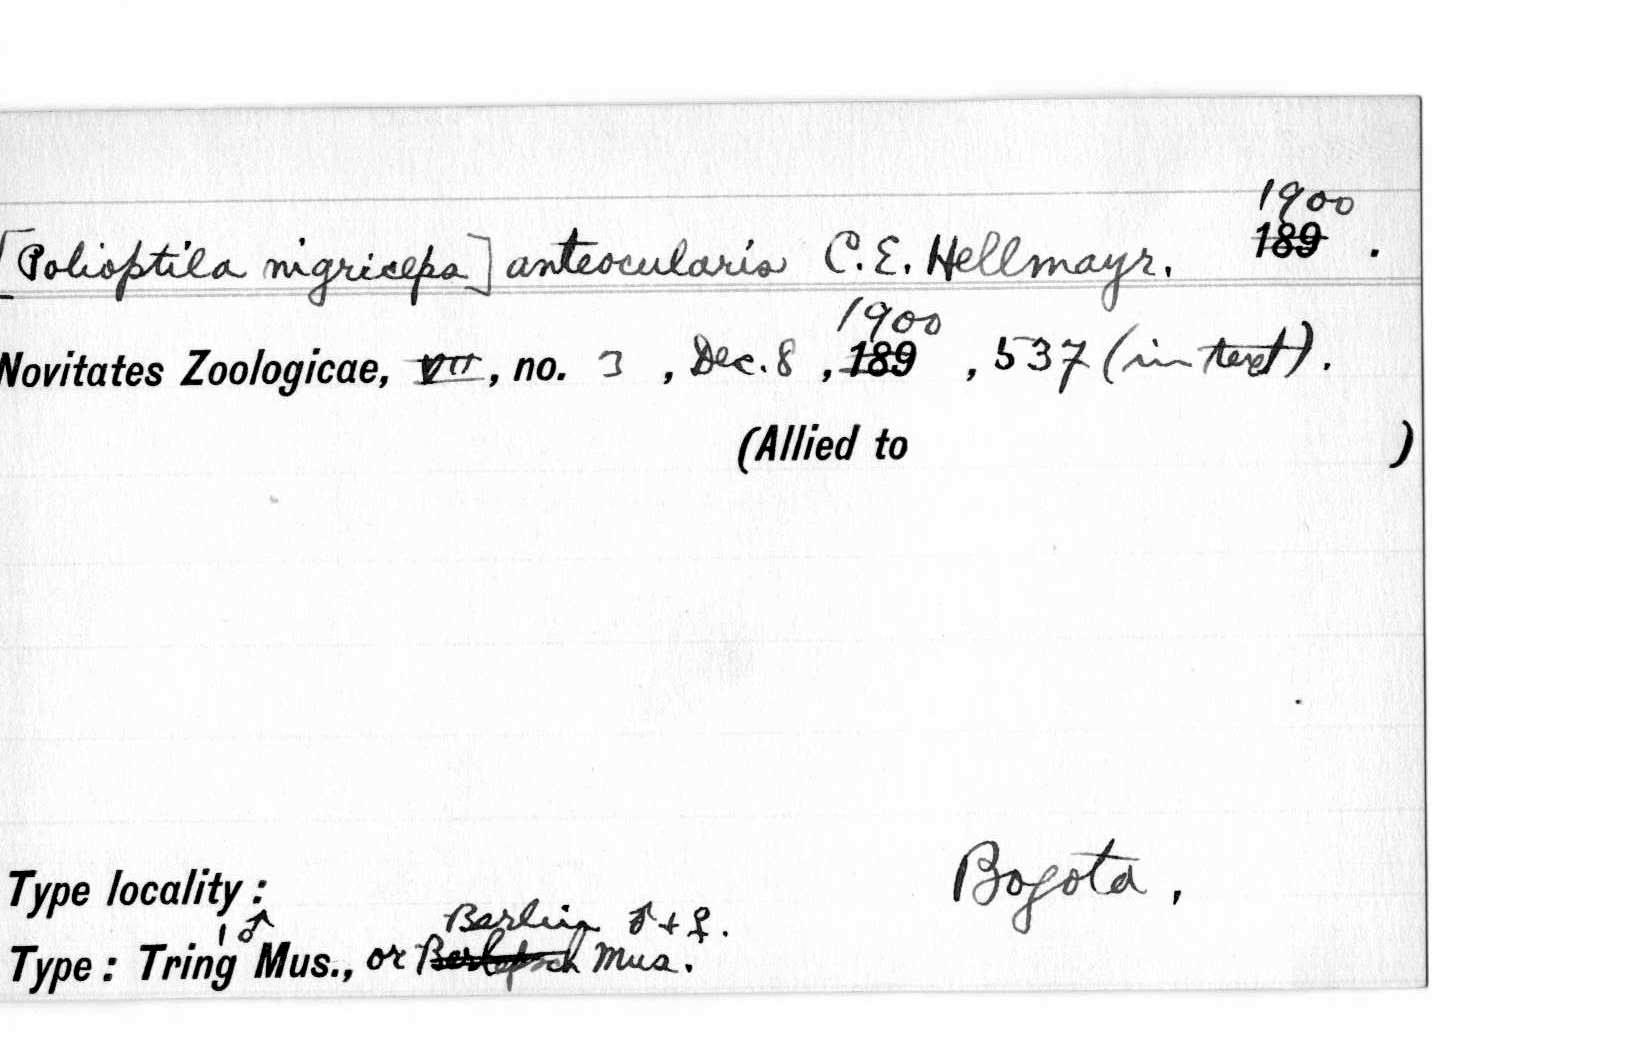 1900
[Polioptila nigriceps] anteocularis C.E. Hellmayr. 189 .
1900
Novitates Zoologicae, VII, no. 3 , Dec. 8 , 189 , 537 (in text).
(Allied to )
Type locality: Bogota ,
1 ♂ Berlin ♂ + ♀.
Type: Tring Mus., or Berlepsch Mus.